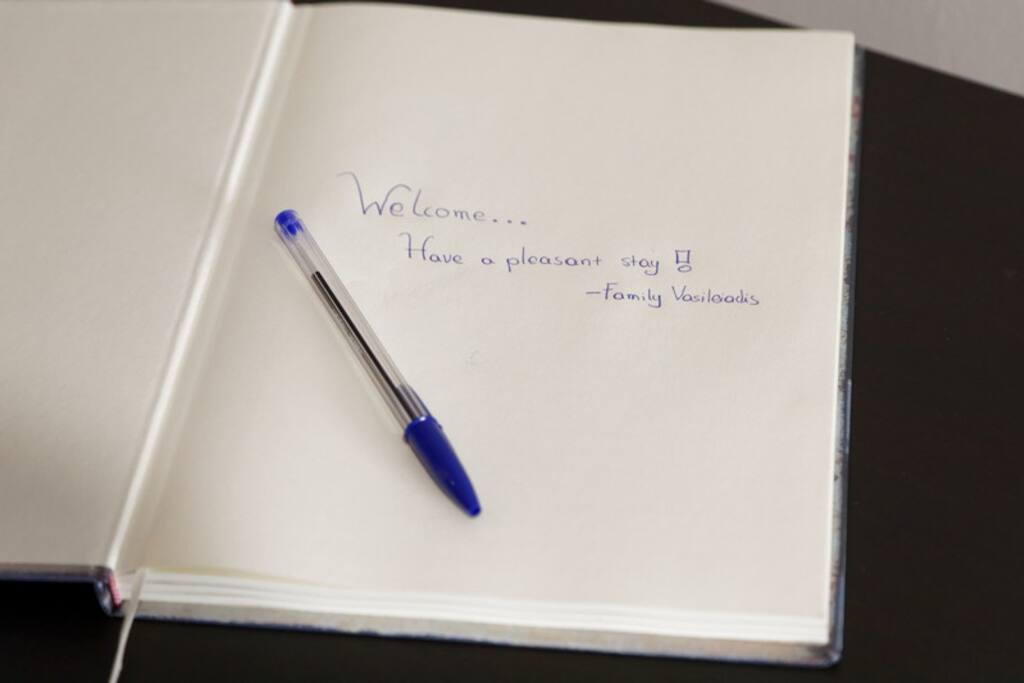 Welcome...
Have a pleasant stay!
-Family Vasileiadis